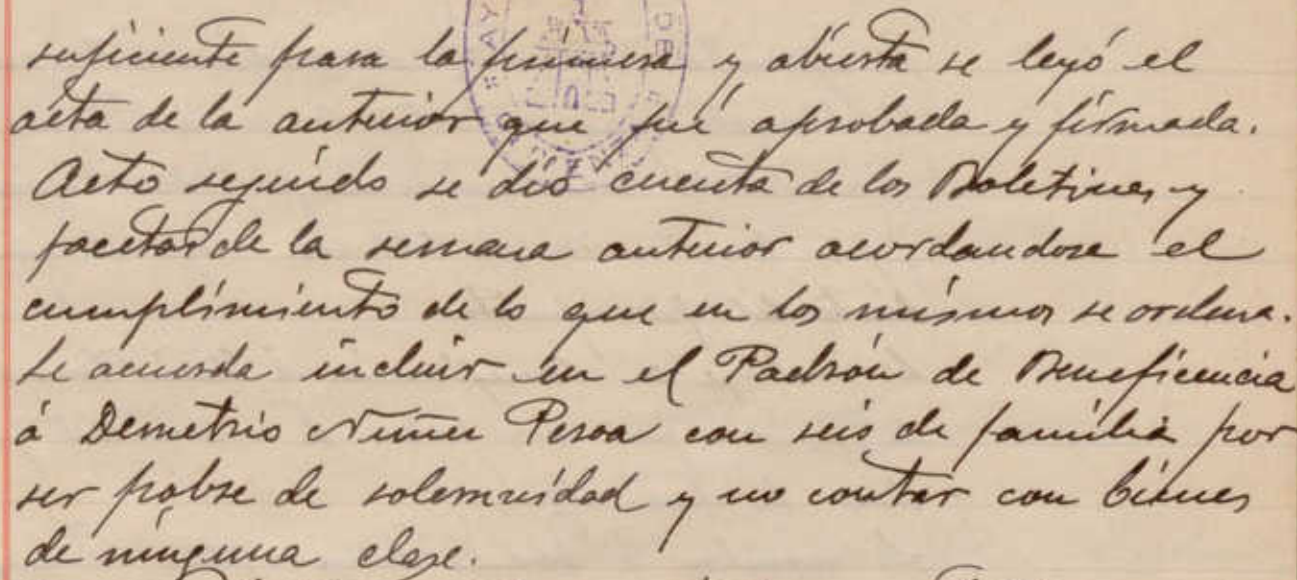 suficiente para la primera y abierta se leyó el
acta de la anterior que fué aprobada y firmada.
Acto seguido se dió cuenta de los Boletines y
facetas de la semana anterior acordandose el
cumplimiento de lo que en los mismos se ordena.
Se acuerda incluir en el Padrón de Beneficencia
á Demetrio Nuñez Pesoa con seis de família por
ser pobre de solemnidad y no contar con bienes
de ninguna clase.